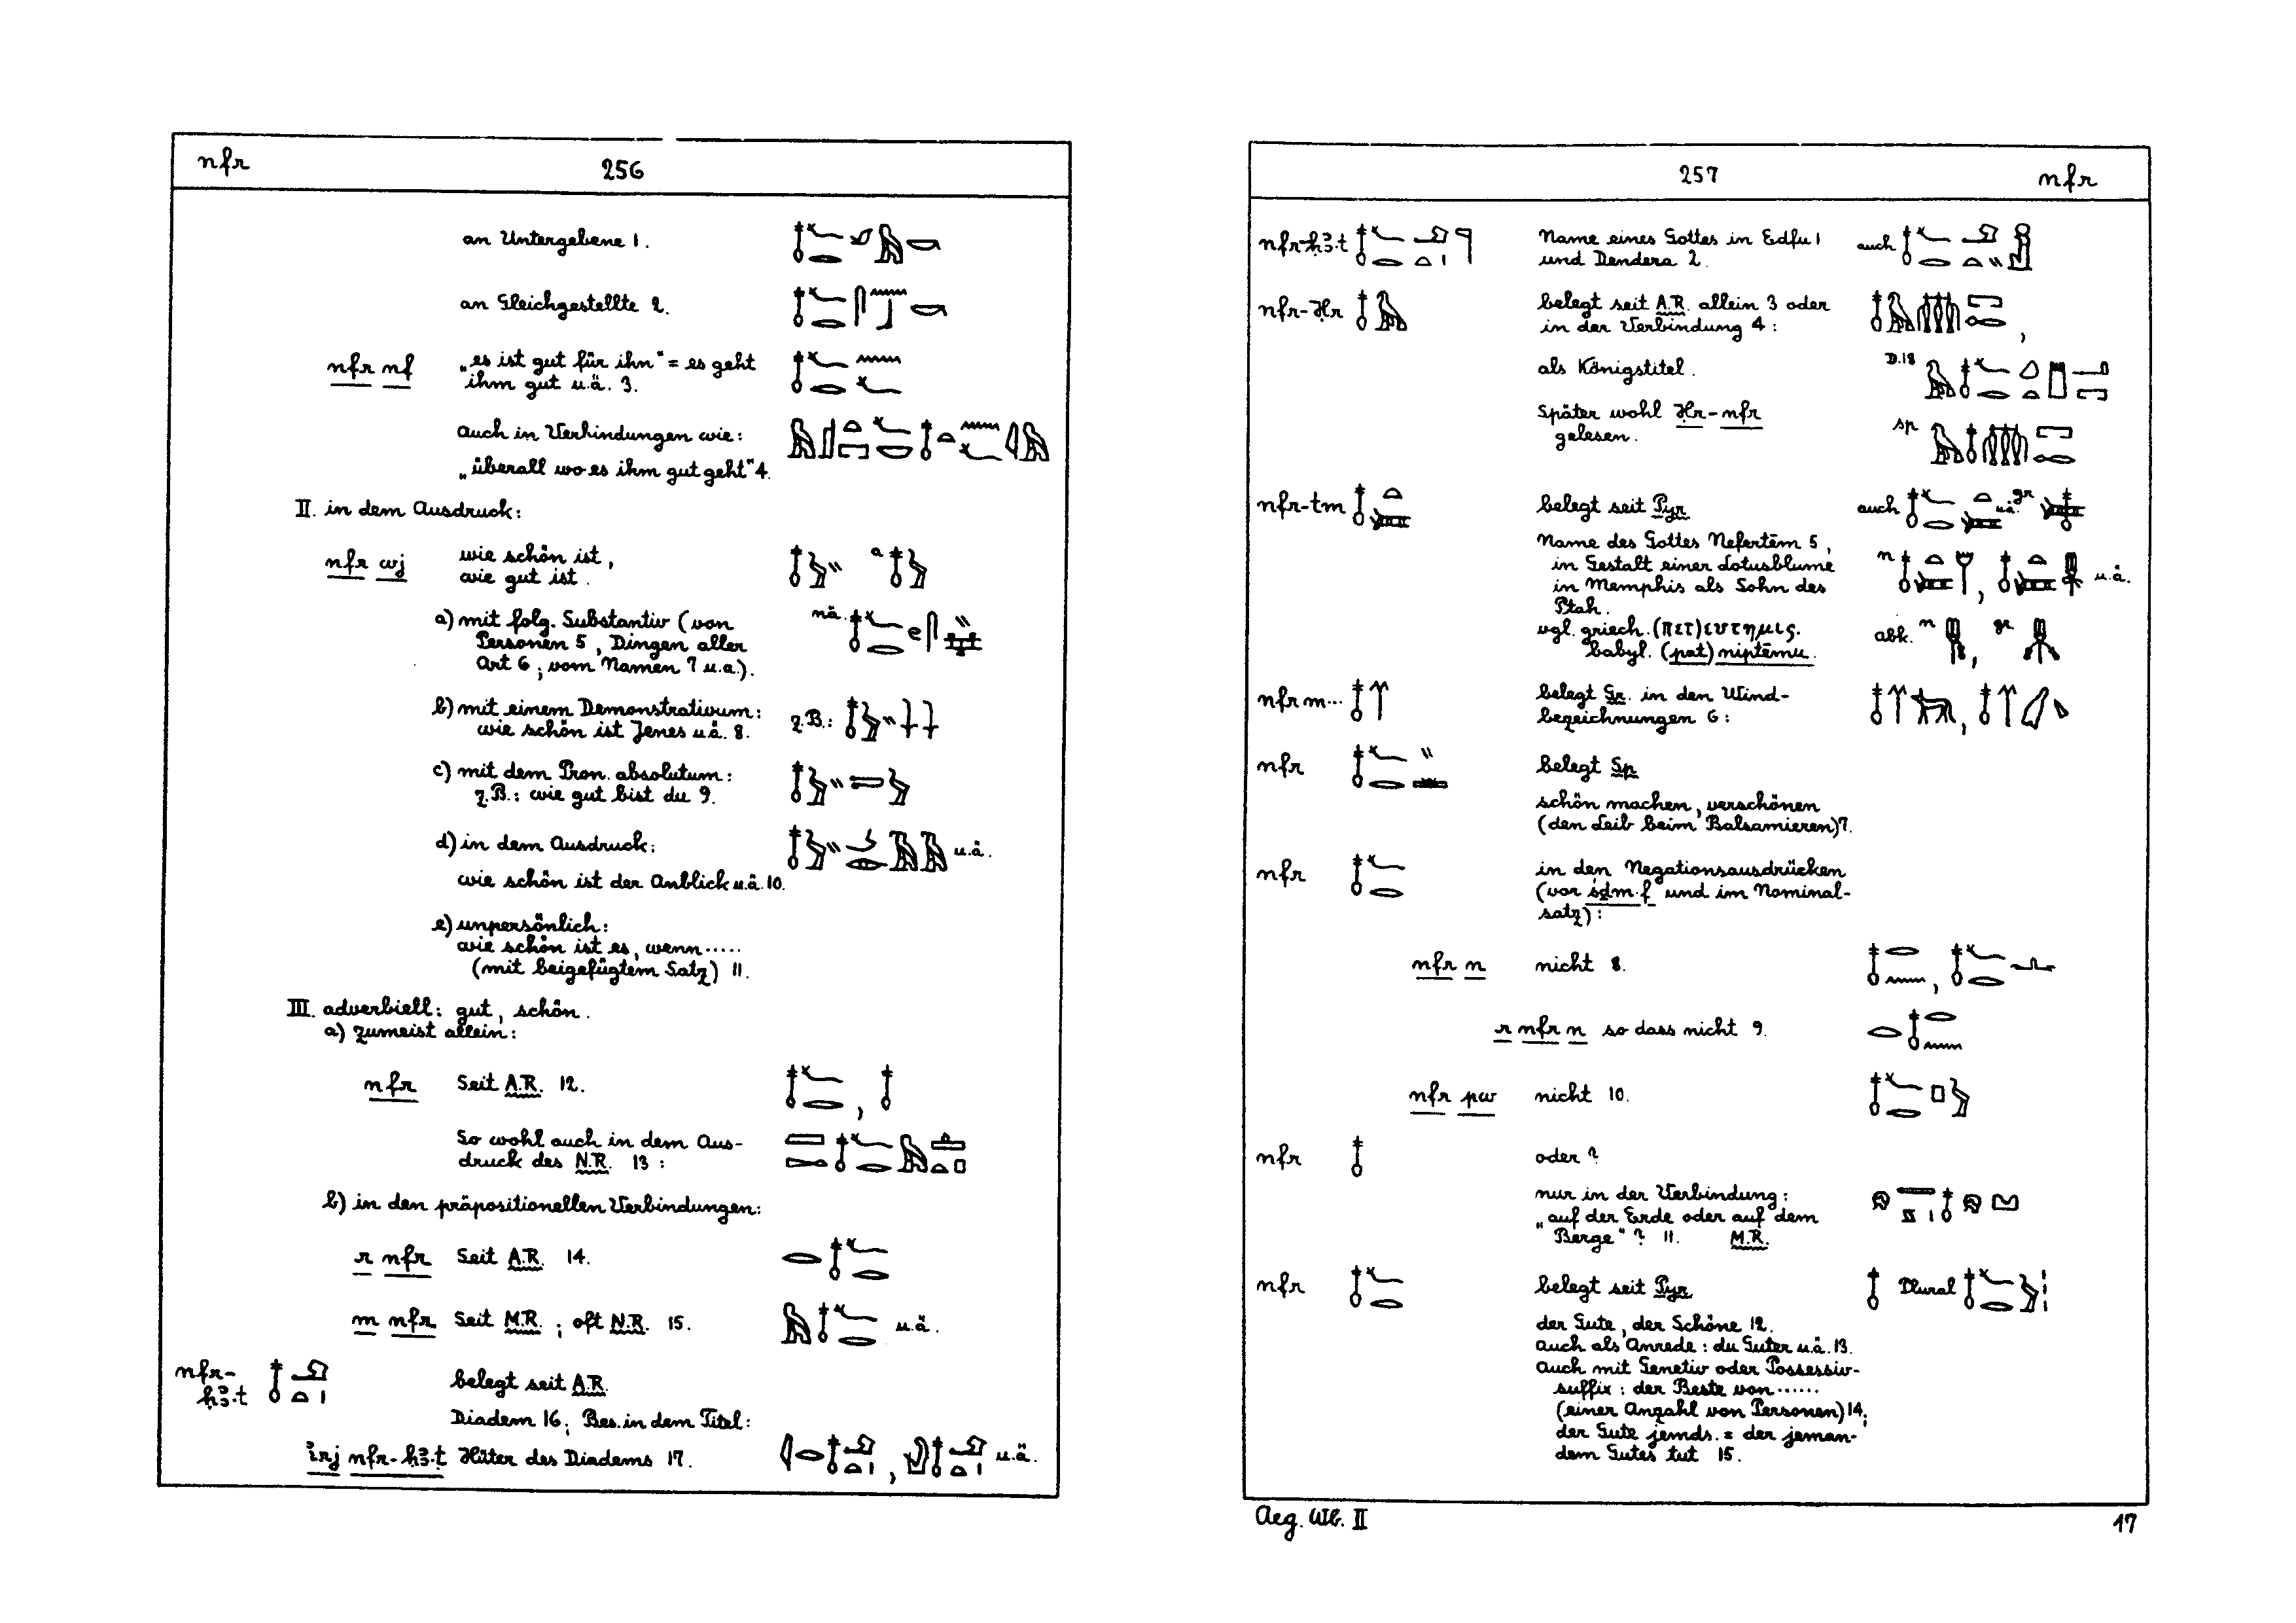 nfr 256
an Untergebene 1.
an Gleichgestellte 2.
nfr nf „es ist gut für ihn" = es geht
ihm gut u.ä. 3.
Auch in Verbindungen wie:
„überall wo es ihm gut geht" 4.
II. in dem Ausdruck:
nfr wj wie schön ist,
wie gut ist. a
a) mit folg. Substantiv (von nä.
Personen 5, Dingen aller
Art 6; vom Namen 7 u.a.).
b) mit einem Demonstrativum: z.B.:
wie schön ist Jenes u.ä. 8.
c) mit dem Pron. absolutum:
z.B.: wie gut bist du 9.
d) in dem Ausdruck: u.ä.
wie schön ist der Anblick u.ä. 10.
e) unpersönlich:
wie schön ist es, wenn .....
(mit beigefügtem Satz) 11.
III. adverbiell: gut, schön.
a) zumeist allein:
nfr Seit A.R. 12.
So wohl auch in dem Aus-
druck des N.R. 13:
b) in den präpositionellen Verbindungen:
r nfr Seit A.R. 14.
m nfr Seit M.R.; oft N.R. 15. u.ä.
nfr-
ḥꜣ.t belegt seit A.R.
Diadem 16; Bes. in dem Titel:
ỉrj nfr-ḥꜣ.t Hüter des Diadems 17. u.ä.
257 nfr
nfr-ḥꜣ.t Name eines Gottes in Edfu 1 auch
und Dendera 2.
nfr-Ḥr belegt seit A.R. allein 3 oder
in der Verbindung 4:
als Königstitel. D.18
Später wohl Ḥr-nfr sp
gelesen.
nfr-tm belegt seit Pyr. auch u.ä. gr
Name des Gottes Nefertêm 5,
in Gestalt einer Lotusblume n u.ä.
in Memphis als Sohn des
Ptah.
vgl. griech. (πετ)ευτημις. abk. n gr.
babyl. (pat) niptêmu.
nfr m... belegt Gr. in den Wind-
bezeichnungen 6:
nfr belegt Sp.
schön machen, verschönen
(den Leib beim Balsamieren) 7.
nfr in den Negationsausdrücken
(vor śḏm.f und im Nominal-
satz):
nfr n nicht 8.
r nfr n so dass nicht 9.
nfr pw nicht 10.
nfr oder?
nur in der Verbindung:
„auf der Erde oder auf dem
Berge"? 11. M.R.
nfr belegt seit Pyr. Plural
der Gute, der Schöne 12.
Auch als Anrede: du Guter u.ä. 13.
Auch mit Genetiv oder Possessiv-
suffix: der Beste von ......
(einer Anzahl von Personen) 14;
der Gute jemds. = der jeman-
dem Gutes tut 15.
Aeg. Wb. II 17